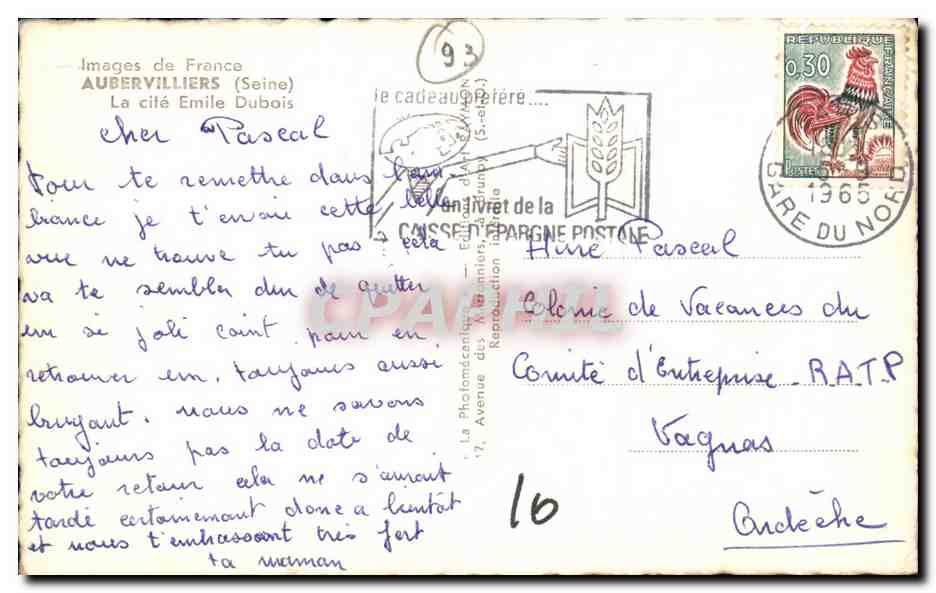 Images de France
AUBERVILLIERS (Seine)
La cité Emile Dubois
93
le cadeau préféré....
un livret de la
CAISSE D'ÉPARGNE POSTALE
RÉPUBLIQUE
FRANÇAISE
0,30
POSTES
1965
GARE DU NORD
cher Pascal
Pour te remettre dans l'am
biance je t'envoie cette belle
vue ne trouve tu pas cela
va te sembler dur de quitter
un si joli coint pour en
retrouver un, toujours aussi
bruyant. nous ne savons
toujours pas la date de
votre retour cela ne s'aurait
tardé certainement donc a bientôt
et nous t'embrassont très fort
ta maman
La Photomécanique - Editions d'Art
17, Avenue des Maronniers, à Brunoy (S.-et-O.)
Reproduction interdite
Pascal
Colonie de Vacances du
Comité d'Entreprise R.A.T.P
Vagnas
Ardèche
10
CPARPHIL